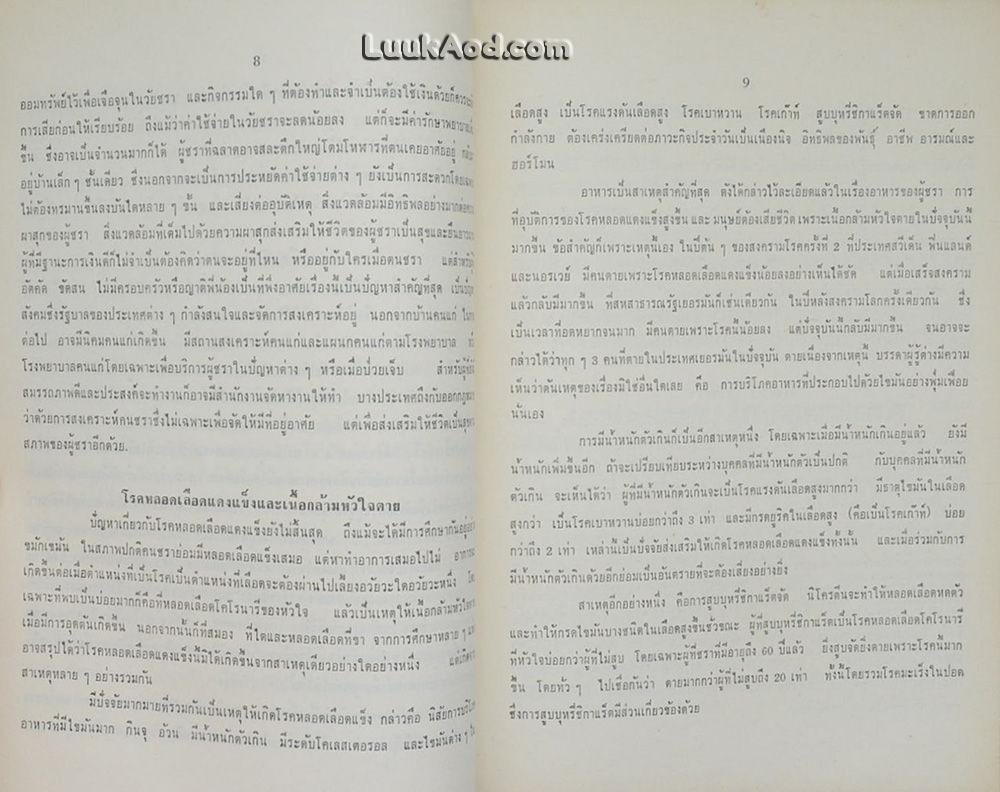 LuukAod.com
8
ออมทรัพย์ไว้เพื่อเจือจุนในวัยชรา และกิจกรรมใด ๆ ที่ต้องทำและจำเป็นต้องใช้เงินด้วยก็ควร
การเสียก่อนให้เรียบร้อย ถึงแม้ว่าค่าใช้จ่ายในวัยชราจะลดน้อยลง แต่ก็จะมีค่ารักษาพยาบาล
ขึ้น ซึ่งอาจเป็นจำนวนมากก็ได้ ผู้ชราที่ฉลาดอาจสละตึกใหญ่โตมโหฬารที่ตนเคยอาศัยอยู่
อยู่บ้านเล็ก ๆ ชั้นเดียว ซึ่งนอกจากจะเป็นการประหยัดค่าใช้จ่ายต่าง ๆ ยังเป็นการสะดวกโดย
ไม่ต้องทรมานขึ้นลงบันไดหลาย ๆ ชั้น และเสี่ยงต่ออุบัติเหตุ สิ่งแวดล้อมมีอิทธิพลอย่างมากต่อ
ผาสุกของผู้ชรา สิ่งแวดล้อมที่เต็มไปด้วยความผาสุกส่งเสริมให้ชีวิตของผู้ชราเป็นสุขและ
ผู้ที่มีฐานะการเงินดีก็ไม่จำเป็นต้องคิดว่าตนจะอยู่ที่ไหน หรืออยู่กับใครเมื่อตนชรา แต่สำหรับ
อัตคัด ขัดสน ไม่มีครอบครัวหรือญาติพี่น้องเป็นที่พึ่งอาศัยเรื่องนี้เป็นปัญหาสำคัญที่สุด
สังคมซึ่งรัฐบาลของประเทศต่าง ๆ กำลังสนใจและจัดการสงเคราะห์อยู่ นอกจากบ้านคนแก่
ต่อไป อาจมีนิคมคนแก่เกิดขึ้น มีสถานสงเคราะห์คนแก่และแผนกคนแก่ตามโรงพยาบาล
โรงพยาบาลคนแก่โดยเฉพาะเพื่อบริการผู้ชราในปัญหาต่าง ๆ หรือเมื่อป่วยเจ็บ สำหรับ
สมรรถภาพดีและประสงค์จะทำงานก็อาจมีสำนักงานจัดหางานให้ทำ บางประเทศถึงกับออกกฎ
ว่าด้วยการสงเคราะห์คนชราซึ่งไม่เฉพาะเพื่อจัดให้มีที่อยู่อาศัย แต่เพื่อส่งเสริมให้ชีวิตเป็นสุข
สภาพของผู้ชราอีกด้วย.
โรคหลอดเลือดแดงแข็งและเนื้อกล้ามหัวใจตาย
ปัญหาเกี่ยวกับโรคหลอดเลือดแดงแข็งยังไม่สิ้นสุด ถึงแม้จะได้มีการศึกษากันอยู่
ขมักเขมัน ในสภาพปกติคนชราย่อมมีหลอดเลือดแข็งเสมอ แต่หาทำอาการเสมอไปไม่
เกิดขึ้นต่อเมื่อตำแหน่งที่เป็นโรคเป็นตำแหน่งที่เลือดจะต้องผ่านไปเลี้ยงอวัยวะใดอวัยวะหนึ่ง
เฉพาะที่พบเป็นบ่อยมากก็คือที่หลอดเลือดโคโรนารีของหัวใจ แล้วเป็นเหตุให้เนื้อกล้ามหัวใจ
เมื่อมีการอุดตันเกิดขึ้น นอกจากนั้นก็ที่สมอง ที่ไตและหลอดเลือดที่ขา จากการศึกษาหลาย ๆ
อาจสรุปได้ว่าโรคหลอดเลือดแดงแข็งนี้มิได้เกิดขึ้นจากสาเหตุเดียวอย่างใดอย่างหนึ่ง
สาเหตุหลาย ๆ อย่างรวมกัน
มีปัจจัยมากมายที่รวมกันเป็นเหตุให้เกิดโรคหลอดเลือดแข็ง กล่าวคือ นิสัยการบริโภค
อาหารที่มีไขมันมาก กินจุ อ้วน มีน้ำหนักตัวเกิน มีระดับโคเลสเตอรอล และไขมันต่าง ๆ
9
เลือดสูง เป็นโรคแรงดันเลือดสูง โรคเบาหวาน โรคเก๊าท์ สูบบุหรี่ซิกาแร็ตจัด ขาดการออก
กำลังกาย ต้องเคร่งเครียดต่อภาวะกิจประจำวันเป็นเนืองนิจ อิทธิพลของพันธุ์ อาชีพ อารมณ์และ
ฮอร์โมน
อาหารเป็นสาเหตุสำคัญที่สุด ดังได้กล่าวไว้ละเอียดแล้วในเรื่องอาหารของผู้ชรา การ
ที่อุบัติการของโรคหลอดแดงแข็งสูงขึ้น และ มนุษย์ต้องเสียชีวิต เพราะเนื้อกล้ามหัวใจตายในปัจจุบันนี้
มากขึ้น ข้อสำคัญก็เพราะเหตุนี้เอง ในปีต้น ๆ ของสงครามโรคครั้งที่ 2 ที่ประเทศสวีเด็น ฟินแลนด์
และนอรเวย์ มีคนตายเพราะโรคหลอดเลือดแดงแข็งน้อยลงอย่างเห็นได้ชัด แต่เมื่อเสร็จสงคราม
แล้วกลับมีมากขึ้น ที่สหสาธารณรัฐเยอรมันก็เช่นเดียวกัน ในปีหลังสงครามโลกครั้งเดียวกัน ซึ่ง
เป็นเวลาที่อดหยากจนมาก มีคนตายเพราะโรคนี้น้อยลง แต่ปัจจุบันนี้กลับมีมากขึ้น จนอาจจะ
กล่าวได้ว่าทุก ๆ 3 คนที่ตายในประเทศเยอรมันในปัจจุบัน ตายเนื่องจากเหตุนี้ บรรดาผู้รู้ต่างมีความ
เห็นว่าต้นเหตุของเรื่องมิใช่อื่นใดเลย คือ การบริโภคอาหารที่ประกอบไปด้วยไขมันอย่างฟุ่มเฟือย
นั่นเอง
การมีน้ำหนักตัวเกินก็เป็นอีกสาเหตุหนึ่ง โดยเฉพาะเมื่อมีน้ำหนักเกินอยู่แล้ว ยังมี
น้ำหนักเพิ่มขึ้นอีก ถ้าจะเปรียบเทียบระหว่างบุคคลที่มีน้ำหนักตัวเป็นปกติ กับบุคคลที่มีน้ำหนัก
ตัวเกิน จะเห็นได้ว่า ผู้ที่มีน้ำหนักตัวเกินจะเป็นโรคแรงดันเลือดสูงมากกว่า มีธาตุไขมันในเลือด
สูงกว่า เป็นโรคเบาหวานบ่อยกว่าถึง 3 เท่า และมีกรดยูริคในเลือดสูง (คือเป็นโรคเก๊าท์) บ่อย
กว่าถึง 2 เท่า เหล่านี้เป็นปัจจัยส่งเสริมให้เกิดโรคหลอดเลือดแดงแข็งทั้งนั้น และเมื่อร่วมกับการ
มีน้ำหนักตัวเกินด้วยอีกย่อมเป็นอันตรายที่จะต้องเสี่ยงอย่างยิ่ง
สาเหตุอีกอย่างหนึ่ง คือการสูบบุหรี่ซิกาแร็ตจัด นิโครตีนจะทำให้หลอดเลือดหดตัว
และทำให้กรดไขมันบางชนิดในเลือดสูงขึ้นชั่วขณะ ผู้ที่สูบบุหรี่ซิกาแร็ตเป็นโรคหลอดเลือดโคโรนารี
ที่หัวใจบ่อยกว่าผู้ที่ไม่สูบ โดยเฉพาะผู้ที่ชราที่มีอายุถึง 60 ปีแล้ว ยิ่งสูบจัดยิ่งตายเพราะโรคนี้มาก
ขึ้น โดยทั่ว ๆ ไปเชื่อกันว่า ตายมากกว่าผู้ที่ไม่สูบถึง 20 เท่า ทั้งนี้โดยรวมโรคมะเร็งในปอด
ซึ่งการสูบบุหรี่ซิกาแร็ตมีส่วนเกี่ยวข้องด้วย